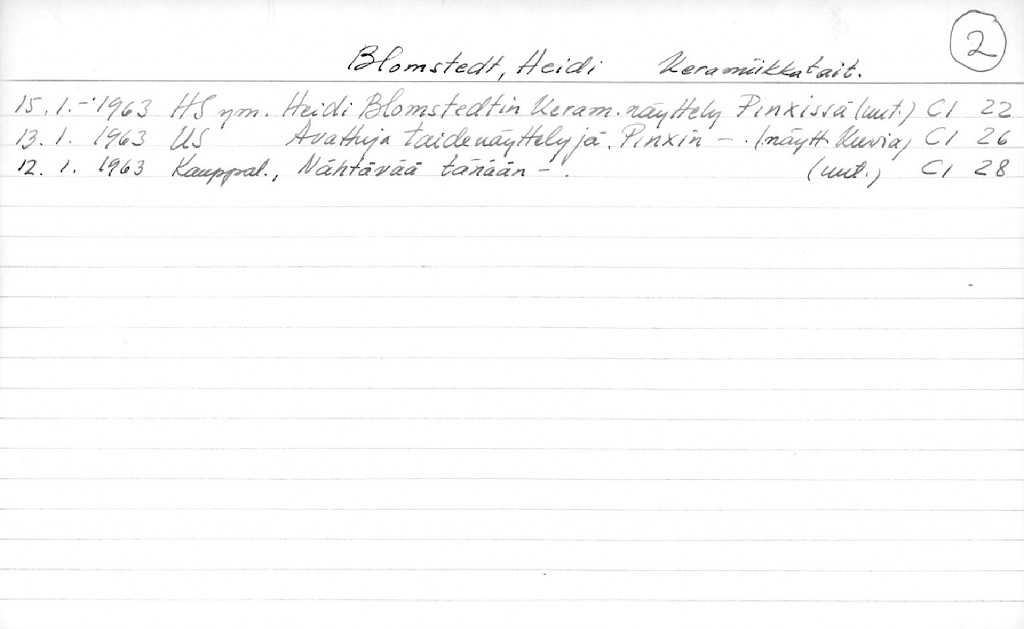 2
Blomstedt, Heidi Keramiikkatait.
15.1.-1963 HS ym. Heidi Blomstedtin Keram. näyttely Pinxissä (uut.) CI 22
13.1. 1963 US Avattuja taidenäyttelyjä. Pinxin - . (näytt. Kuvia) CI 26
12. 1. 1963 Kauppal., Nähtävää tänään - . (uut.) CI 28